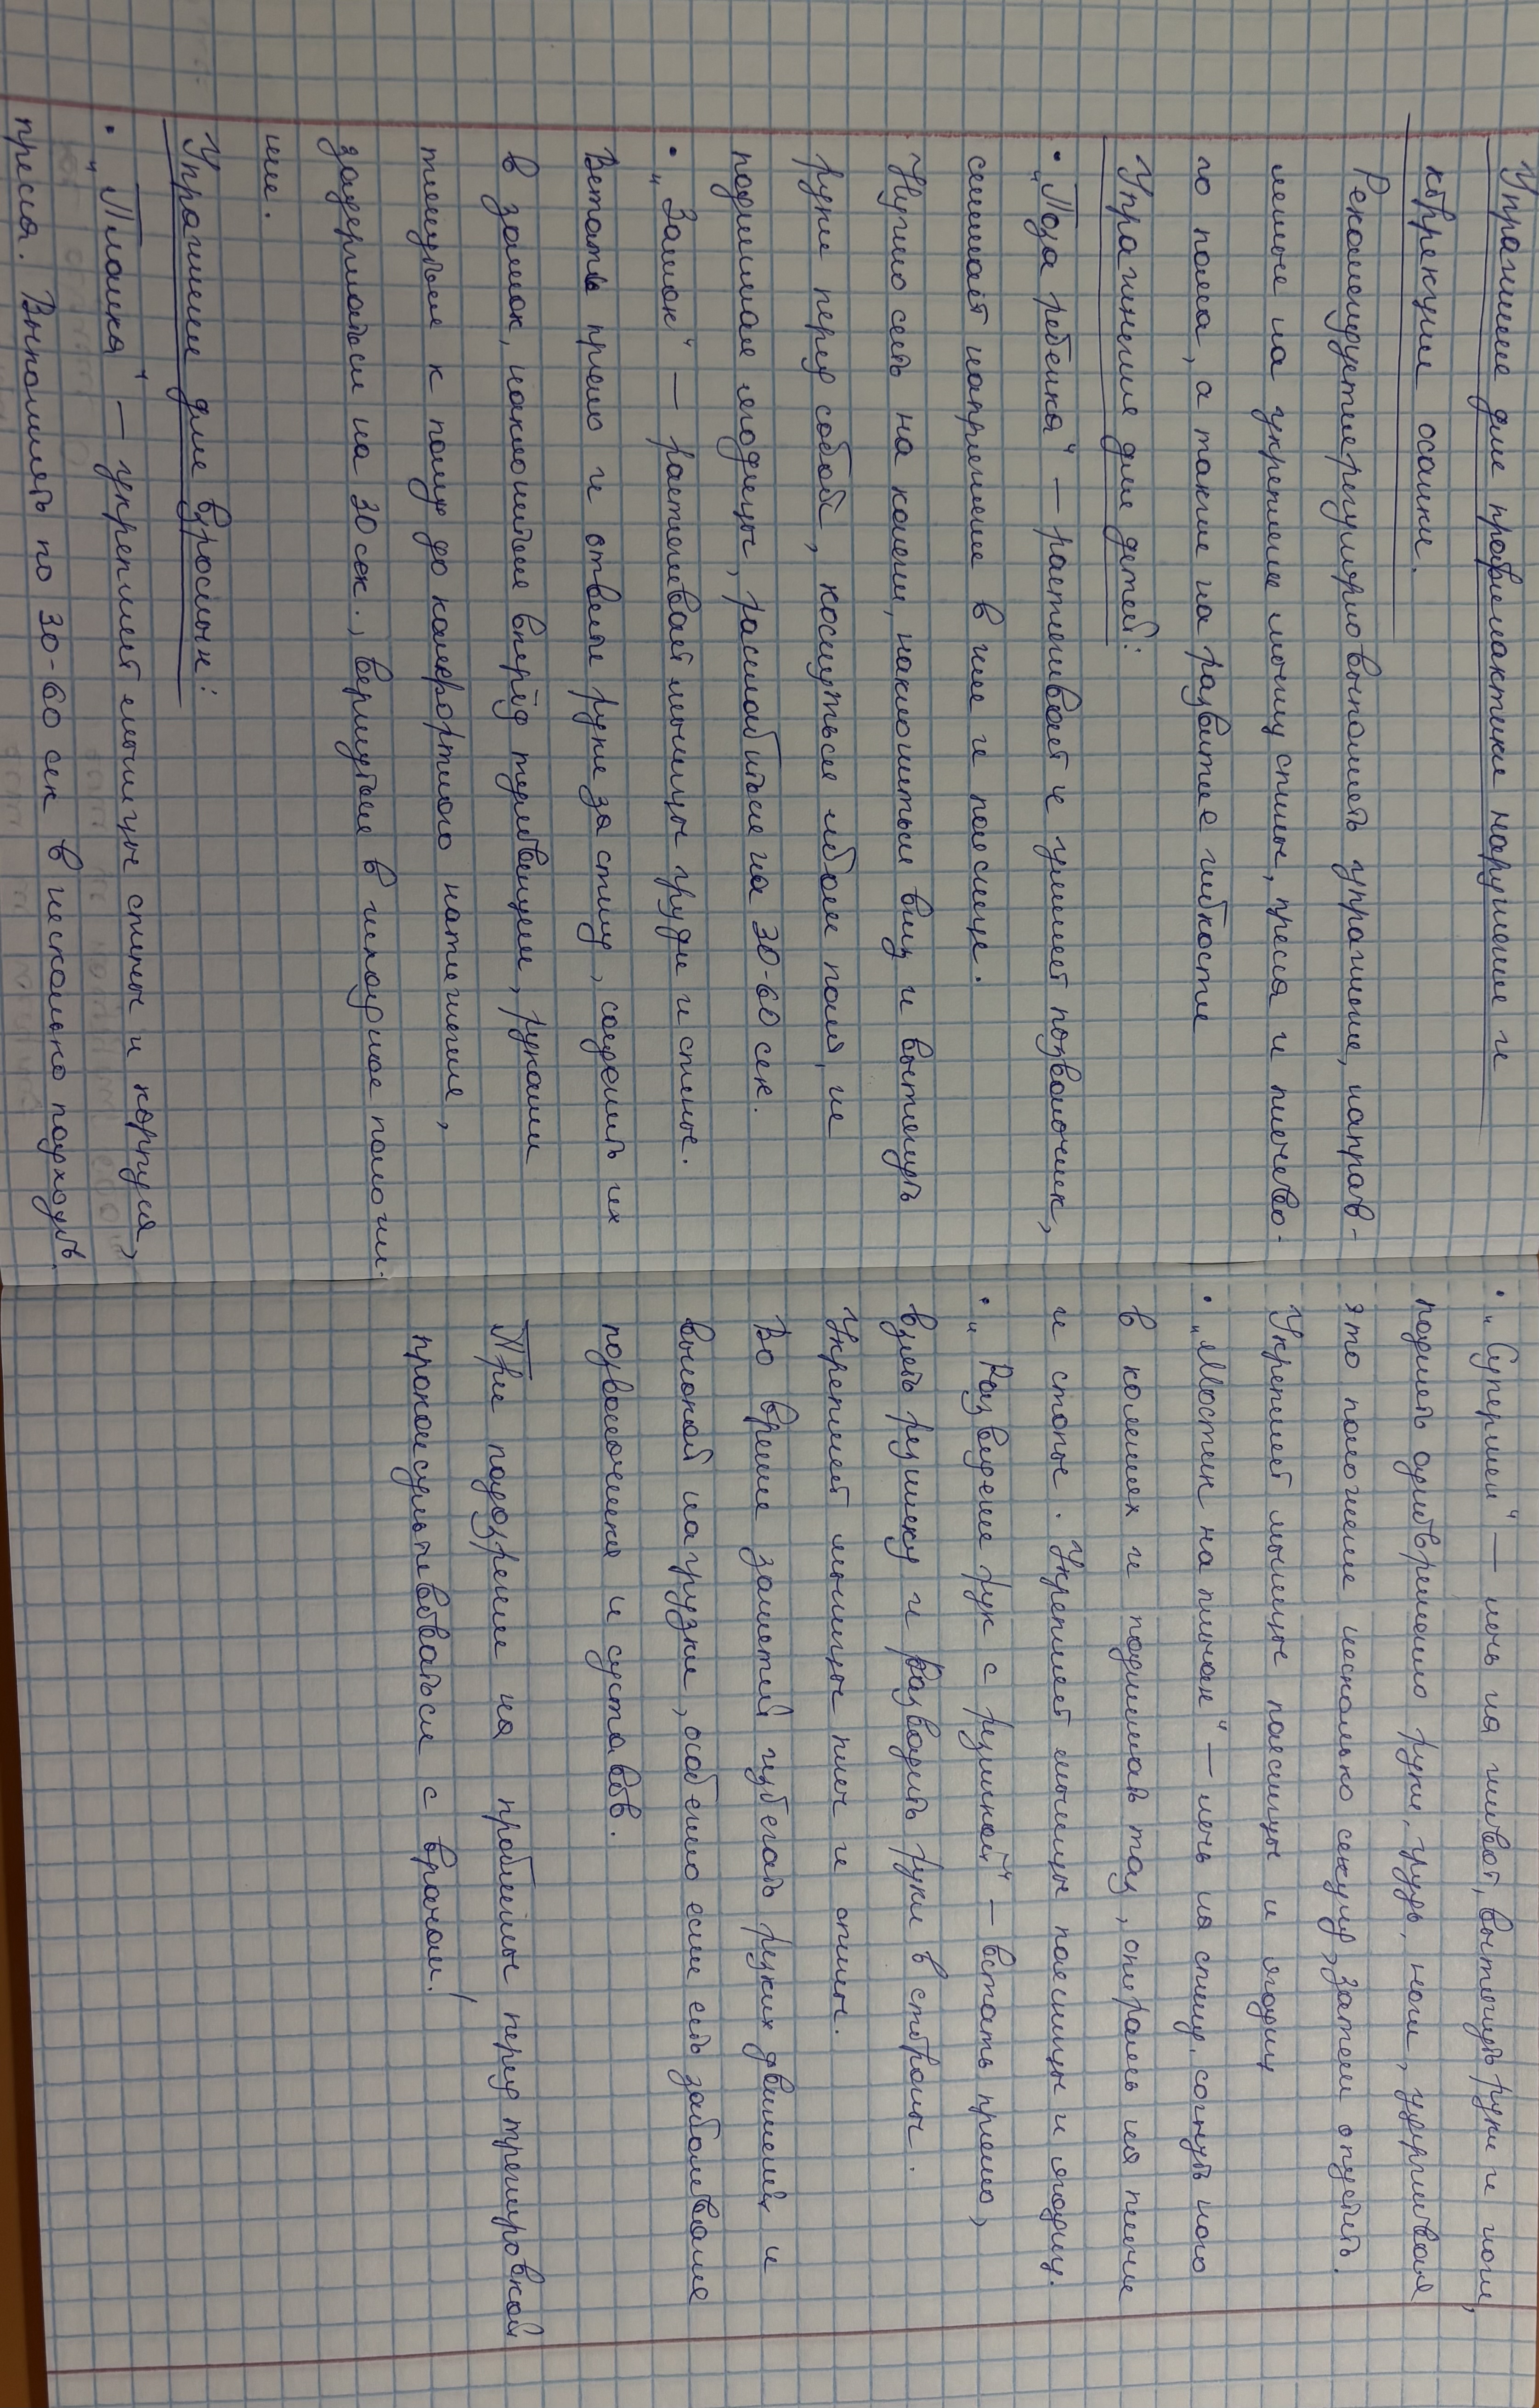 Упражнение для профилактики нарушение и
коррекции осанки.
Рекомендуется регулярно выполнять упражнение, направ-
ленные на укрепление мышц спины, пресса и плечево-
го пояса, а также на развитие гибкости
Упражнение для детей:
• „Поза ребенка" — растягивает и удлиняет позвоночник,
снимает напряжение в шее и пояснице.
Нужно сесть на колени, наклониться вниз и вытянуть
руки перед собой, коснуться лбом пола, не
поднимая ягодицы, расслабиться на 30-60 сек.
• „Замок" — растягивает мышцы груди и спины.
Встать прямо и отвести руки за спину, соединить их
в замок, наклониться вперёд туловищем, руками
тянуться к полу до комфортного натяжения,
задержаться на 30 сек., вернуться в исходное положе-
ние.
Упражнение для взрослых:
• „Планка" — укрепляет мышцы спины и корпуса,
пресса. Выполнять по 30-60 сек в несколько подходов.
• „Супермен" — лечь на живот, вытянуть руки и ноги,
поднять одновременно руки, грудь, ноги, удерживая
это положение несколько секунд, затем опустить.
Укрепляет мышцы поясницы и ягодиц
• „Мостик на плечах" — лечь на спину, согнуть ноги
в коленях и поднимать таз, опираясь на плечи
и стопы. Укрепляет мышцы поясницы и ягодиц.
• „Разведение рук с резинкой" — встать прямо,
взять резинку и разводить руки в стороны.
Укрепляет мышцы плеч и спины.
Во время занятий избегать резких движений и
высокой нагрузки, особенно если есть заболевания
позвоночника и суставов.
При подозрении на проблемы перед тренировкой
проконсультироваться с врачом!